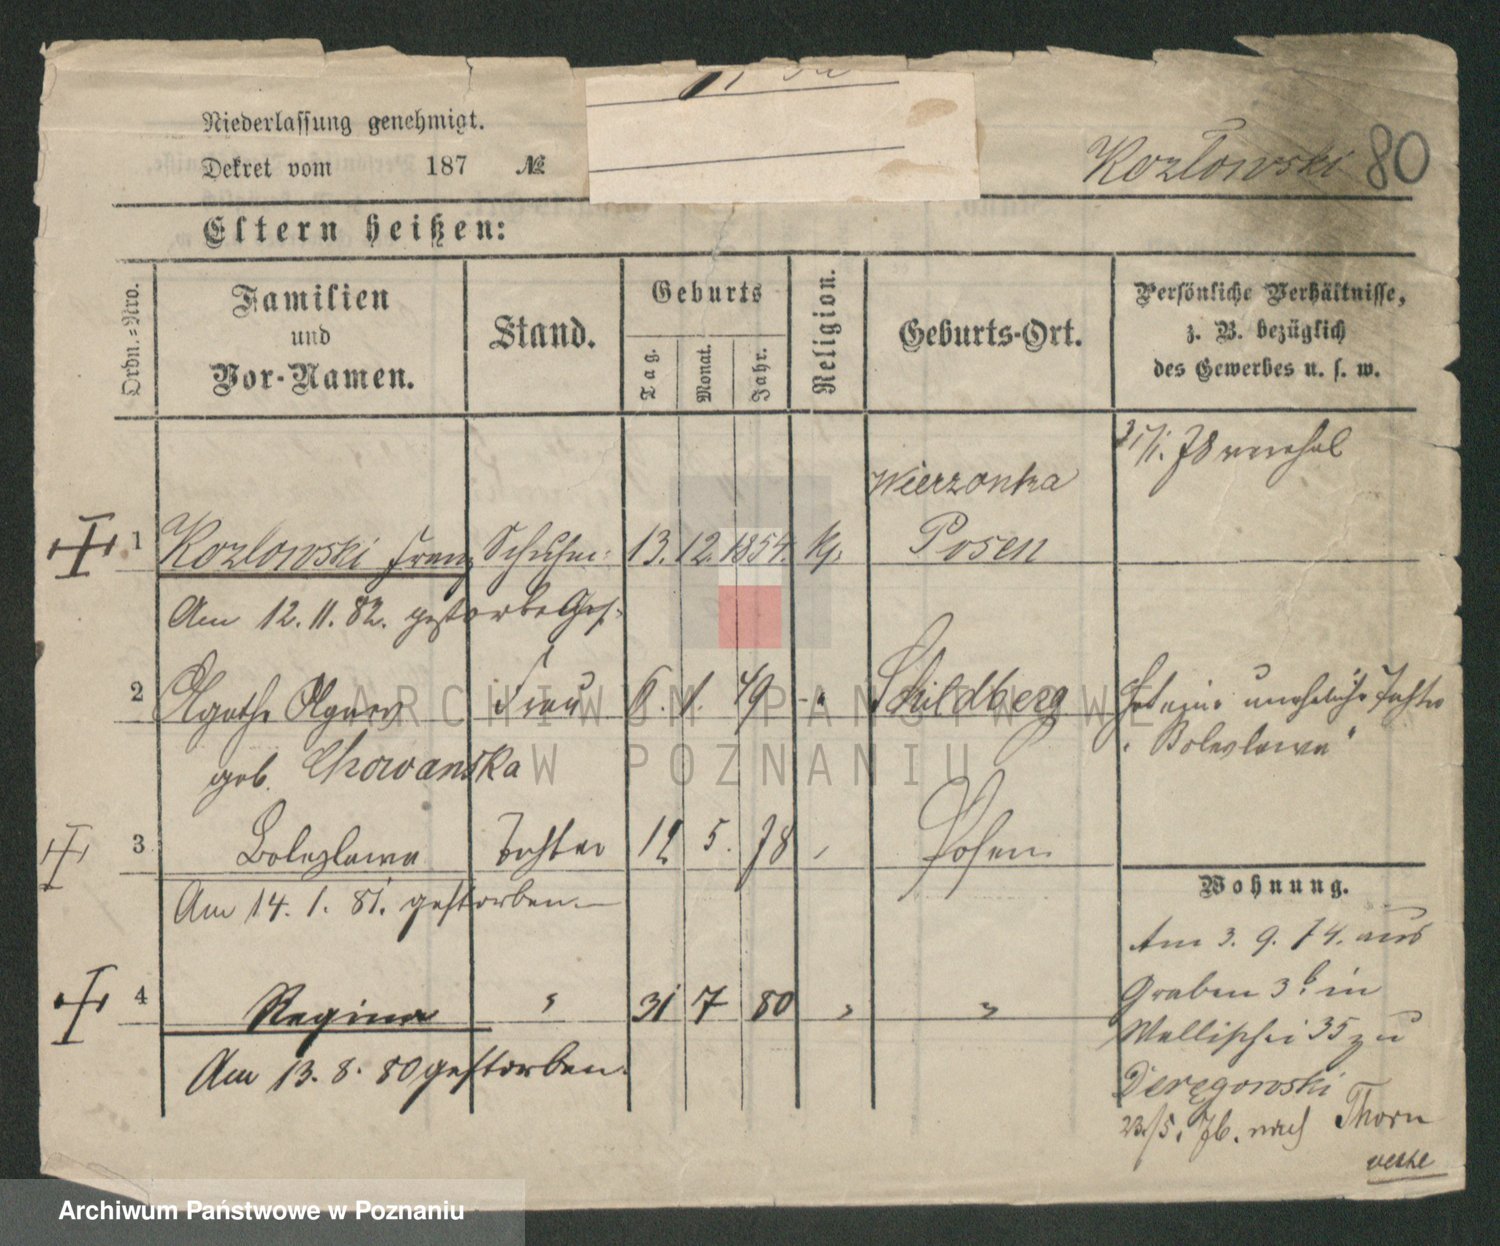 Niederlassung genehmigt.
Dekret vom 187 №
Kozłowski 80
Eltern heißen:
Ordn.-Nro.
Familien
und
Vor-Namen.
Stand.
Geburts
Tag.
Monat.
Jahr.
Religion.
Geburts-Ort.
Persönliche Verhältnisse,
z. B. bezüglich
des Gewerbes u. s. w.
Wierzonka
1 Kozlowski Franz Schuhm: 13. 12. 1854. k. Posen
Am 12. 11. 82. gestorben
2 Agathe Agnes Frau 6. 1. 49 " Schildberg Hat eine uneheliche Tochter
"Boleslawa"
geb. Chowanska
3 Boleslawa Tochter 12 5. 78 Posen
Am 14. 1. 81. gestorben.
4 Regina " 31 7 80 " "
Am 13. 8. 80 gestorben.
Wohnung.
Am 3. 9. 74. aus
Graben 3b in
Wallischei 35 zu
Deręgowski
23/5. 76. nach Thorn
verte
ARCHIWUM PAŃSTWOWE
W POZNANIU
Archiwum Państwowe w Poznaniu